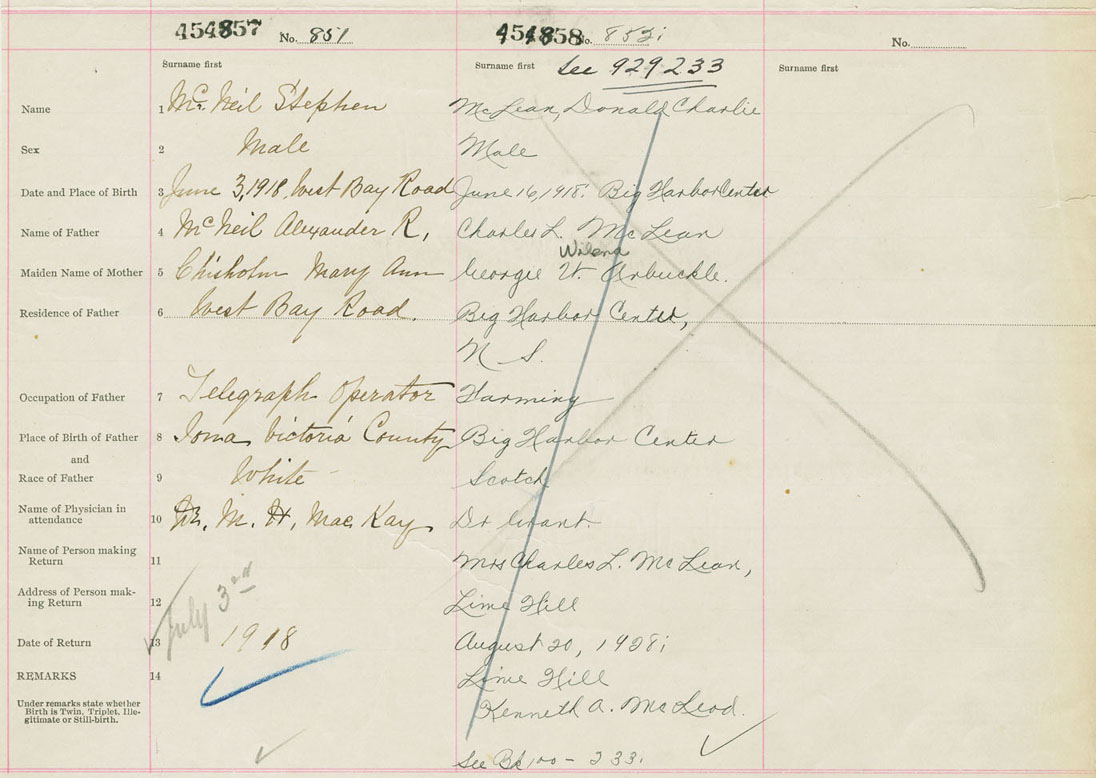 454857 No. 851
454858 No. 853
No.
Surname first
Surname first
See 929233
Surname first
Name 1 Mc Neil Stephen McLean, Donald Charlie
Sex 2 Male Male
Date and Place of Birth 3 June 3, 1918. West Bay Road June 16, 1918. Big Harbor Center
Name of Father 4 McNeil Alexander R, Charles L. McLean
Wilena
Maiden Name of Mother 5 Chisholm Mary Ann Georgie W. Arbuckle.
Residence of Father 6 West Bay Road. Big Harbor Center,
N S.
Occupation of Father 7 Telegraph Operator Farming
Place of Birth of Father 8 Iona Victoria County Big Harbor Center
and
Race of Father 9 White Scotch
Name of Physician in
attendance 10 M. H. MacKay Dr Grant.
Name of Person making
Return 11 Mrs Charles L. McLean,
Address of Person mak-
ing Return 12 Lime Hill
July 3rd
Date of Return 13 1918 August 20, 1928
REMARKS 14 Lime Hill
Under remarks state whether
Birth is Twin, Triplet, Ille-
gitimate or Still-birth.
Kenneth A. McLeod.
See Bk 100 - 233